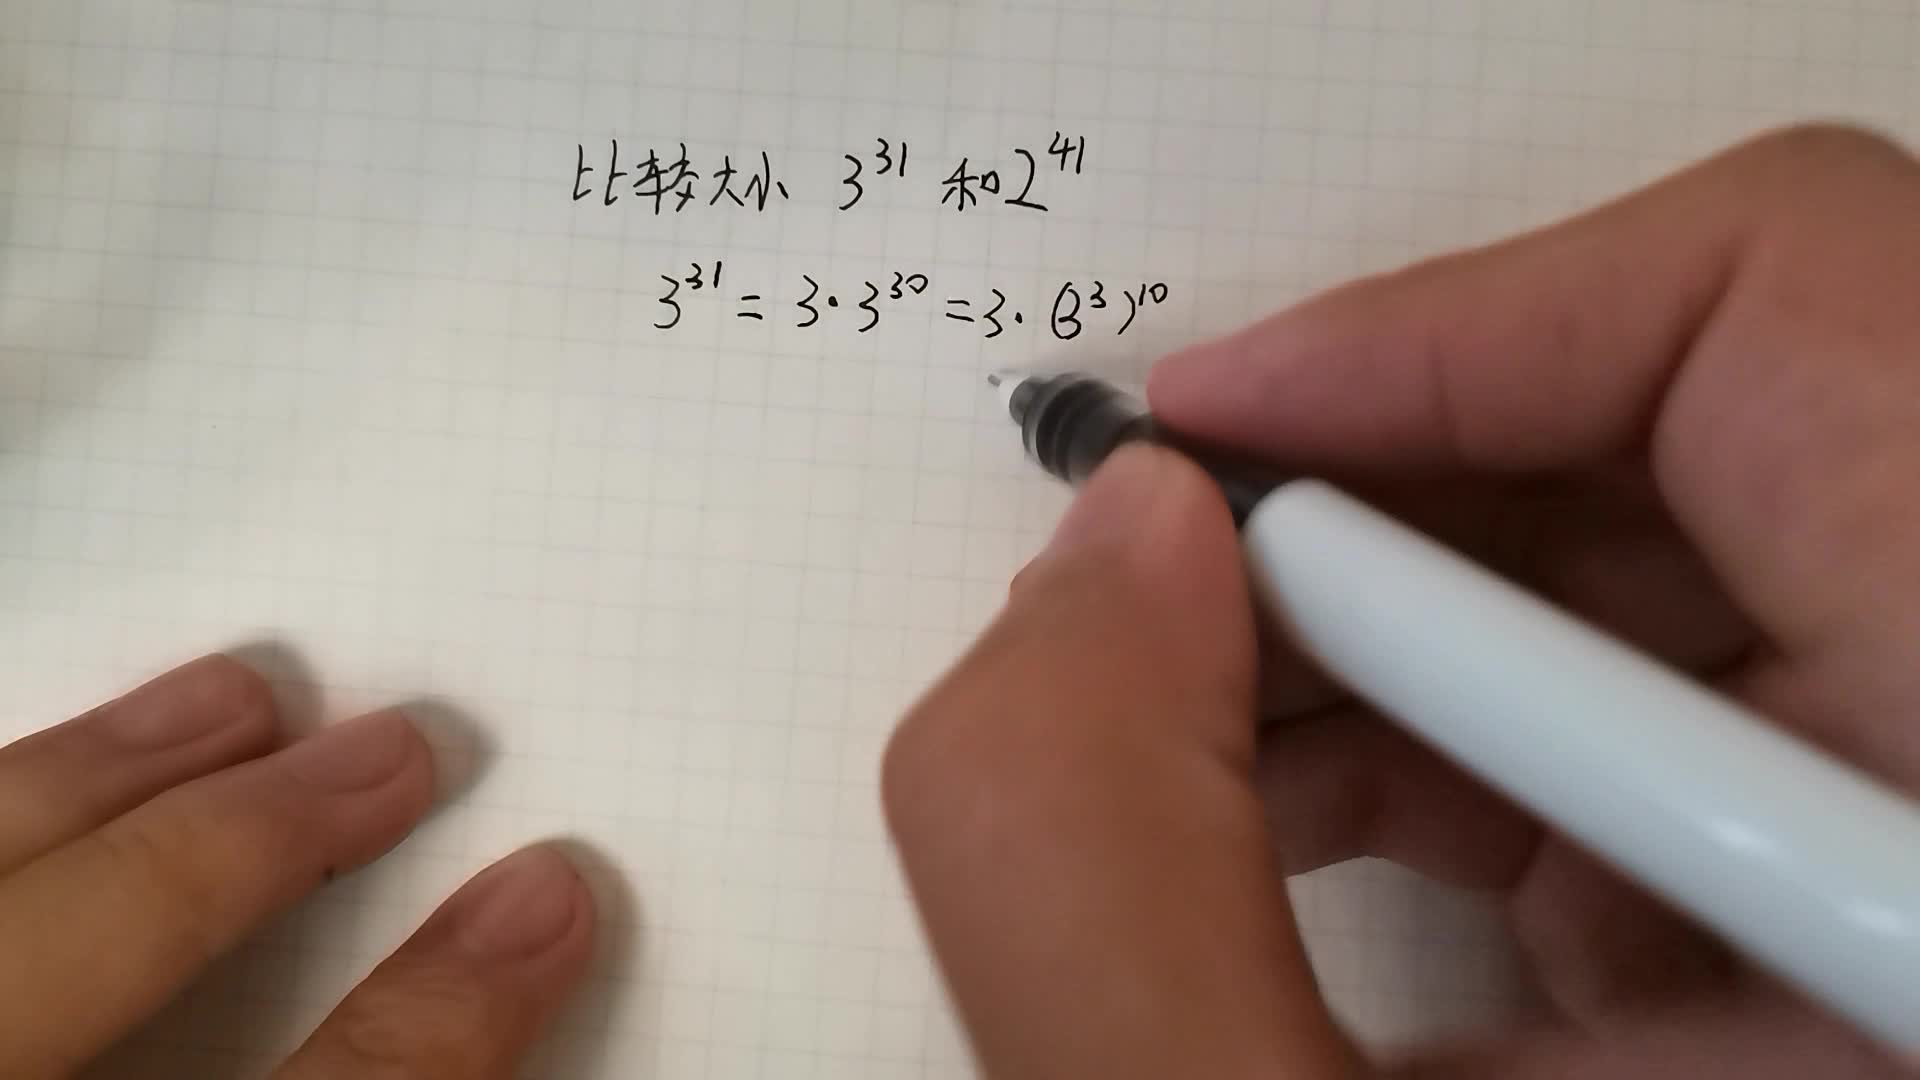 比较大小 3³¹ 和 2⁴¹
3³¹ = 3·3³⁰ = 3·(3³)¹⁰